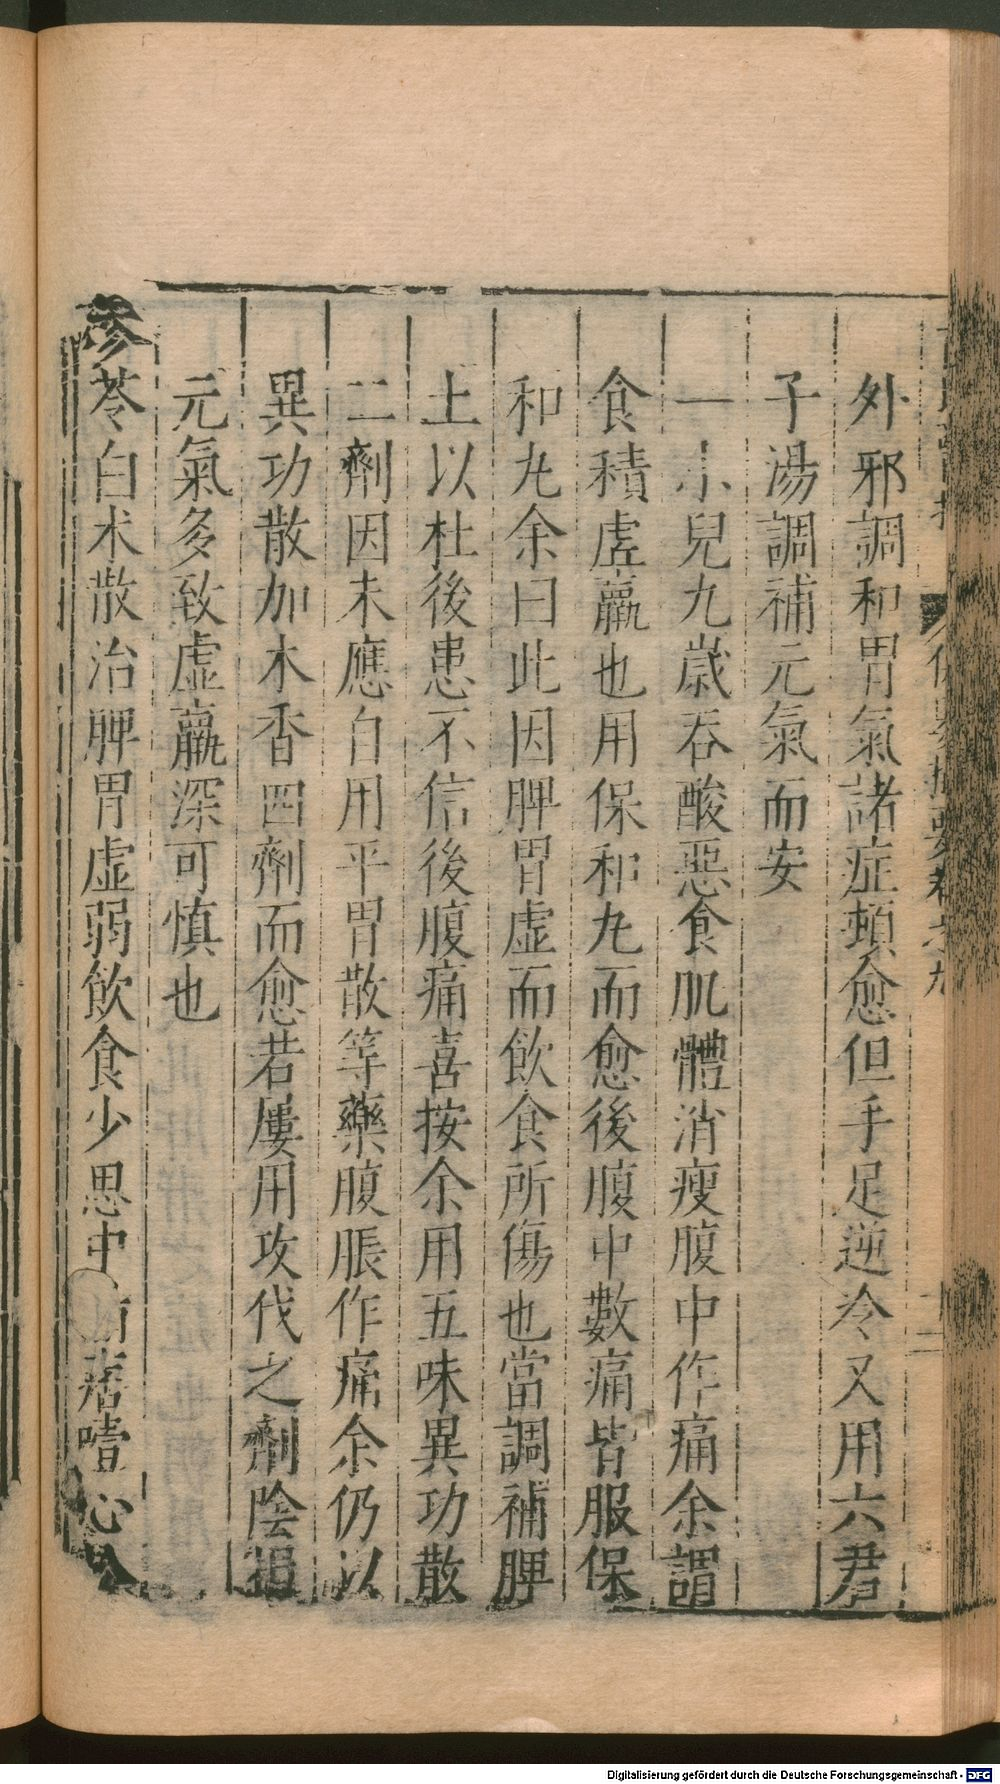 外邪調和胃氣諸症頓愈但手足逆冷又用六君
子湯調補元氣而安
一小兒九歲吞酸惡食肌體消瘦腹中作痛余謂
食積虛羸也用保和丸而愈後腹中數痛皆服保
和丸余曰此因脾胃虛而飲食所傷也當調補脾
土以杜後患不信後腹痛喜按余用五味異功散
二劑因未應自用平胃散等藥腹脹作痛余仍以
異功散加木香四劑而愈若屢用攻伐之劑陰損
元氣多致虛羸深可慎也
參苓白术散治脾胃虛弱飲食少思中痞噎心
Digitalisierung gefördert durch die Deutsche Forschungsgemeinschaft - DFG